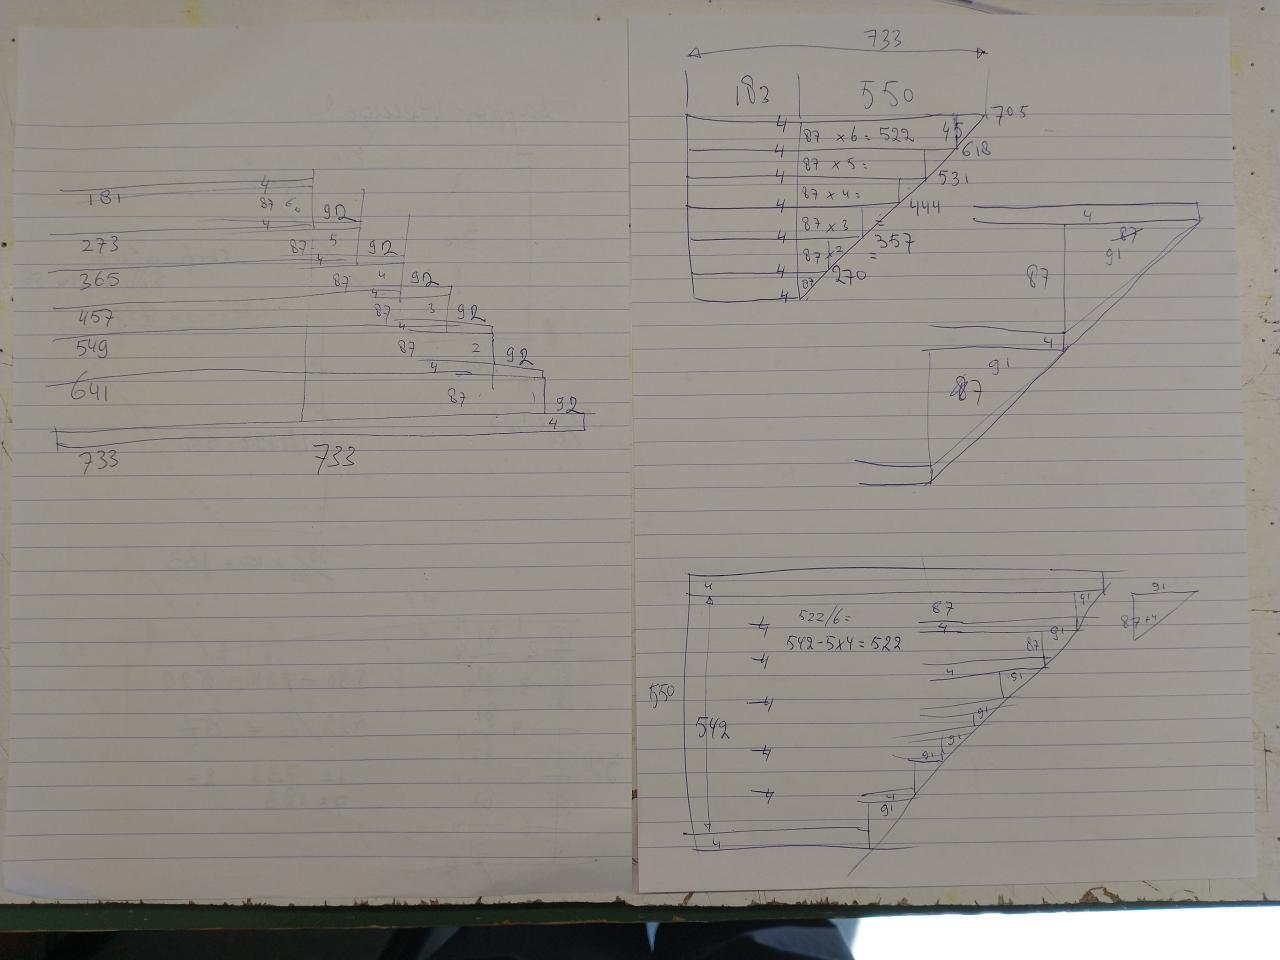 4
181 87 6. 92
4
273 87 5 92
4
365 87 4 92
4
457 87 3 92
4
549 87 2 92
4
641 87 1 92
4
733 733
733
183 550
4 705
87 x 6 = 522 45
4 618
87 x 5 =
4 531
87 x 4 =
4 444
87 x 3 =
4 357
87 x 2 =
4 270
87
4
4
87
91
87
4
91
87
4
91
522/6= 87
4 4 91
542-5x4=522
91 87+4
87
4 4
91
550
4 91
542
4 91
91
4 4
91
4